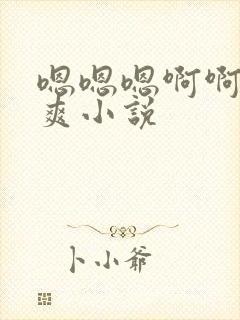 嗯嗯嗯啊啊
爽小説
卜小爺